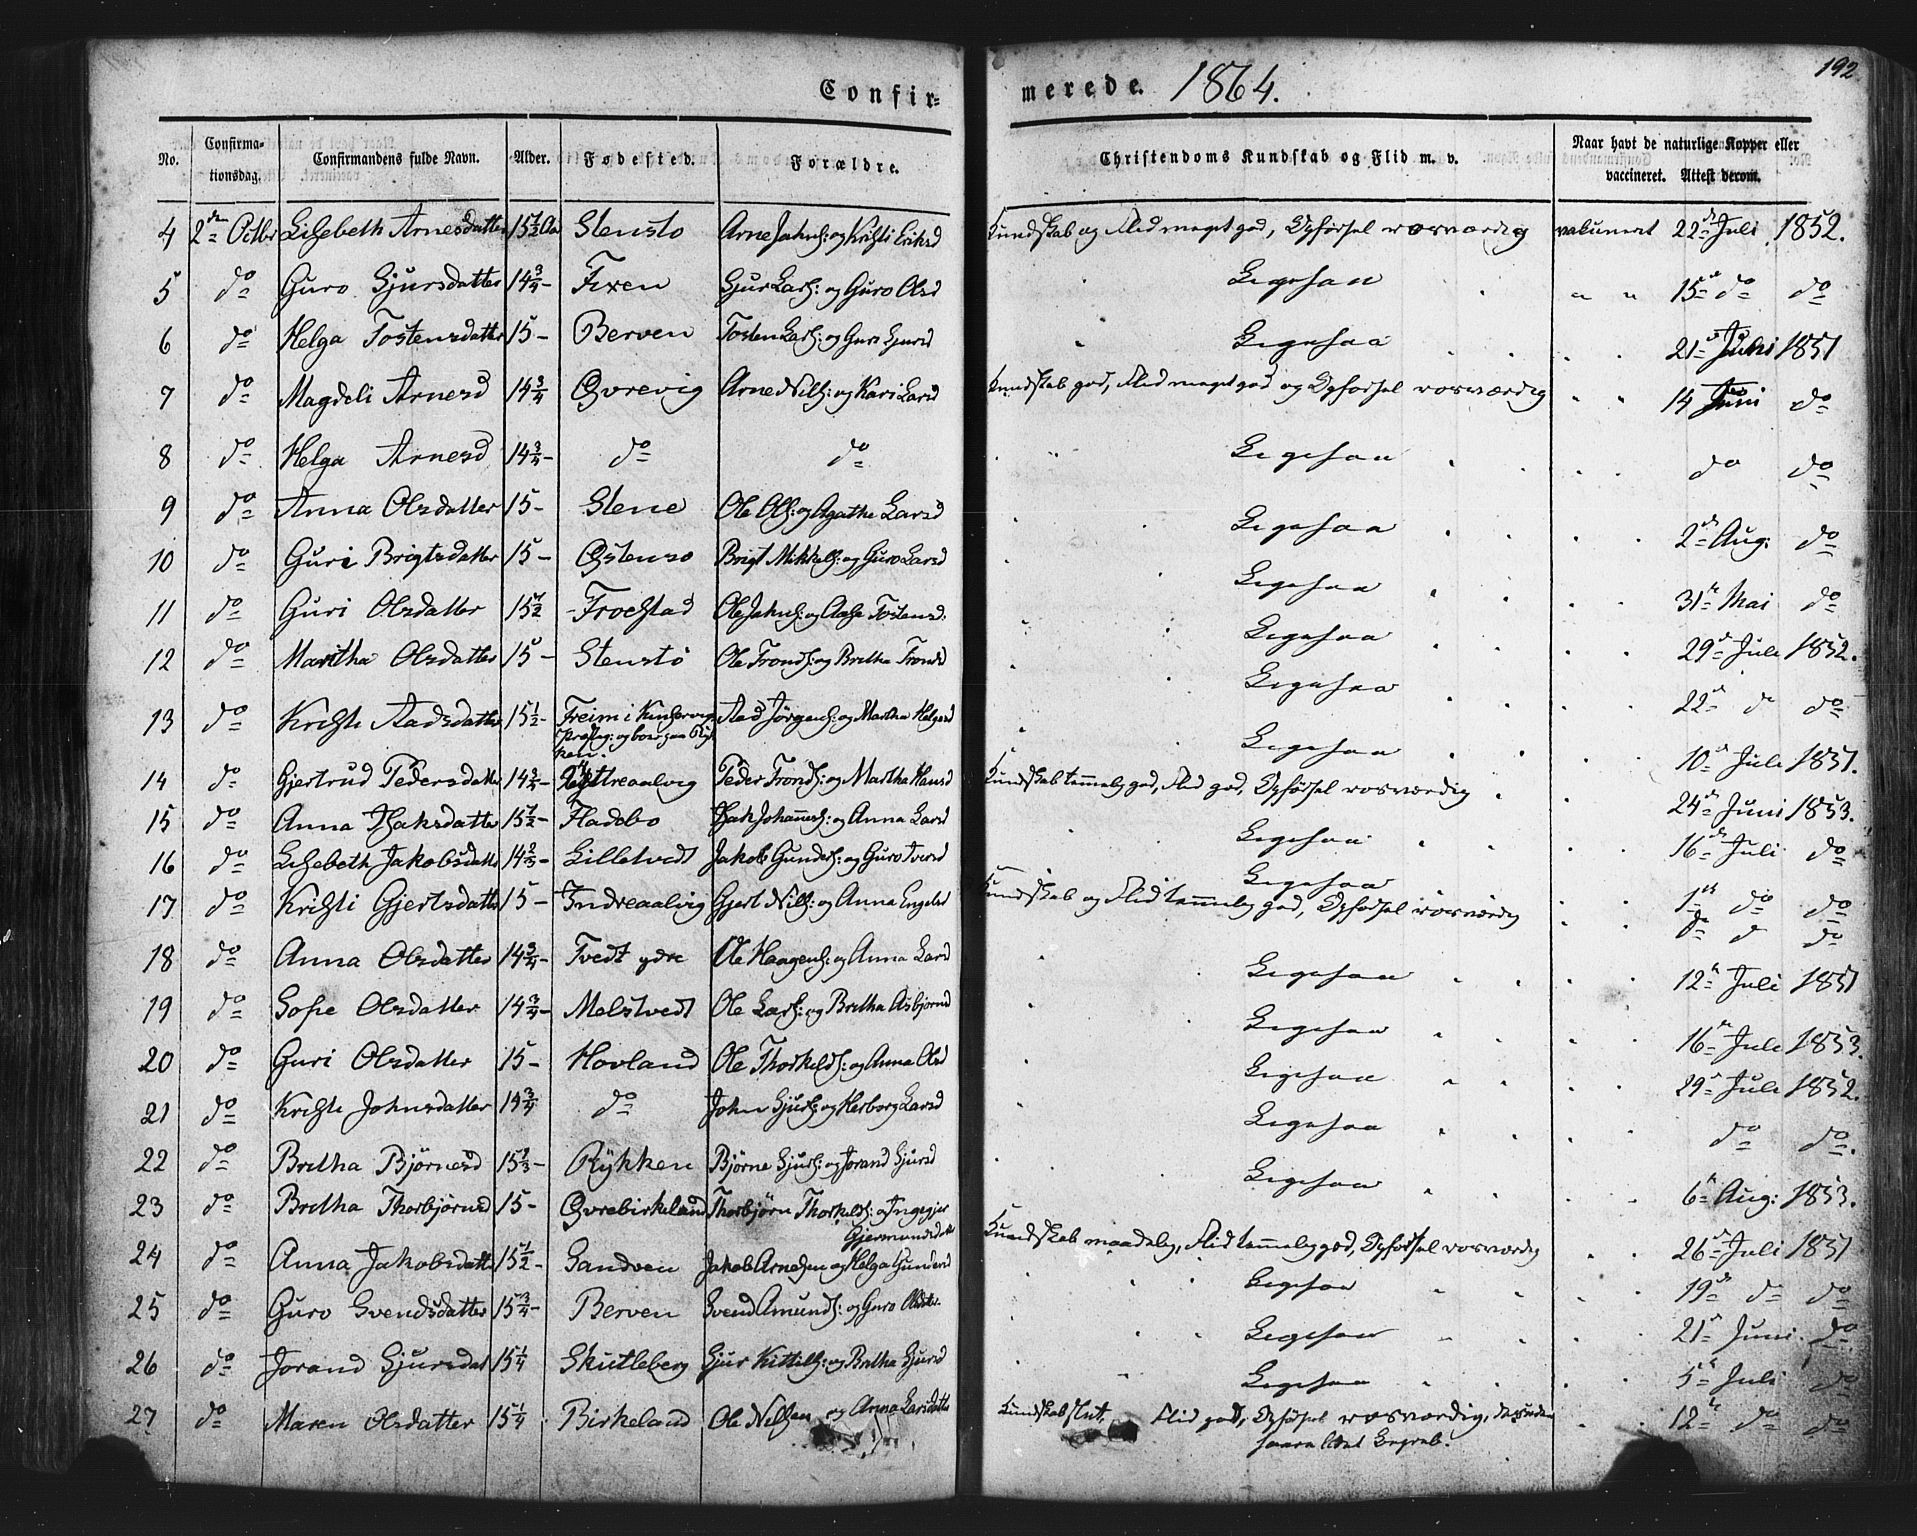 192
Confir-
merede. 1864.
No.
Confirma-
tionsdag.
Confirmandens fulde Navn.
Alder.
Fødested.
Forældre.
Christendoms Kundskab og Flid m. v.
Naar havt de naturlige Kopper eller
vaccineret. Attest derom.
4 2den Octbr Lisebeth Arnesdatter 15½ Aa Stensto Arne Jahns: og Kristi Eriksd Kundskab og Flid meget god, Opførsel rosværdig vakcineret 22de Juli 1852.
5 do Guro Sjursdatter 14¾- Fixen Sjur Lars: og Guro Olsd Ligesaa " " 15de do do
6 do Helga Tostensdatter 15- Berven Tosten Lars: og Guri Sjursd Ligesaa 21de Juni 1851
7 do Magdeli Arnesd 14¾ Øvrevig Arne Nils: og Kari Larsd Kundskab god, Flid meget god og Opførsel rosværdig " " 14 Juni do
8 do Helga Arnesd 14¾- do do Ligesaa do do
9 do Anna Olsdatter 15- Stene Ole Ols: og Agathe Larsd Ligesaa 2de Aug: do
10 do Guri Brigtsdatter 15- Østensø Brigt Mikkels: og Guro Larsd Ligesaa 31te Mai do
11 do Guri Olsdatter 15½ Froestad Ole Jahns: og Aase Tostensd. Ligesaa 29de Juli 1852.
12 do Maritha Olsdatter 15- Stenstø Ole Tronds: og Britha Trondsd Ligesaa 22de do do
13 do Kristi Aadsdatter 15½- Freim i Kinservigs Aad Jørgens: og Martha Helgesd Ligesaa 10de Juli 1851.
Præsteg: og boer paa Ryk
ken.
14 do Gjertrud Pedersdatter Yttreaalvig Peder Tronds: og Martha Hansd Kundskab temmelig god, Flid god, Opførsel rosværdig 24de Juni 1853.
15 do Anna Isaksdatter 15½- Fladebo Isak Johannes: og Anna Larsd Ligesaa 16de Juli do
16 do Lisebeth Jakobsdatter Lilletvedt Jakob Gunders: og Guro Iversd Ligesaa 1ste do do
17 do Kristi Gjertsdatter 15- Indreaalvig Gjert Nils: og Anna Engelsd Kundskab og Flid temmelig god, Opførsel rosværdig do do do
18 do Anna Olsdatter 14¾- Tvedt ydre Ole Haagens: og Anna Larsd Ligesaa 12te Juli 1851
19 do Sofie Olsdatter 14¾- Melstvedt Ole Lars: og Britha Asbjørnsd Ligesaa 16de Juli 1853.
20 do Guri Olsdatter 15- Hovland Ole Thorkelds: og Anna Olsd Ligesaa 29de Juli 1852.
21 do Kristi Johnsdatter 14¾ do John Sjurs: og Herborg Larsd Ligesaa do do.
22 do Britha Bjørnesd Rykken Bjørne Sjurs: og Jorand Sjursd Ligesaa 6te Aug: 1853.
23 do Britha Thorbjørnsd 15- Øvrebirkeland Thorbjørn Thorkelds: og Ingegjer Kundskab maadelig, Flid temmelig god, Opførsel rosværdig 26de Juli 1851
Gjermundsdatt
24 do Anna Jakobsdatter 15½- Sandven Jakob Arnesen og Helga Gundersd Ligesaa 19de do do
25 do Guro Svendsdatter 15¾- Berven Svend Amunds: og Guro Olsdtr. Ligesaa 21de Juni do
26 do Jorand Sjursdat 15¼ Skutleberg Sjur Kittils: og Britha Sjursd Ligesaa 5te Juli do
27 do Maren Olsdatter 15¼ Birkeland Ole Nilsen og Anna Larsdatter Kundskab slet, Flid god, Opførsel rosværdig, 12te do do